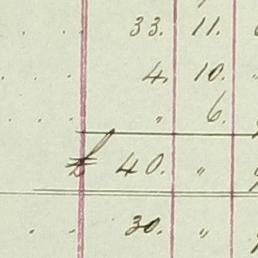 33. 11.
4. 10. "
" 6.
£ 40. "
30. "